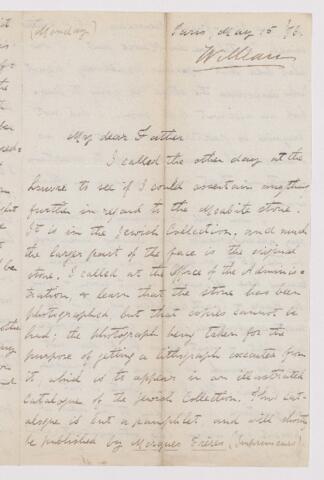 (Monday)
Paris, May 15 /76.
My dear Father
I called the other day at the
Louvre to see if I could ascertain anything
further in regard to the Moabite stone.
It is in the Jewish Collection, and much
the larger part of the face is the original
stone. I called at the office of the Adminis-
tration, & learn that the stone has been
photographed but that copies cannot be
had: the photograph being taken for the
purpose of getting a lithograph executed from
it, which is to appear in an illustrated
catalogue of the Jewish Collection. This cat-
alogue is but a pamphlet and will shortly
be published by Morgues Frères, (Imprimeurs)